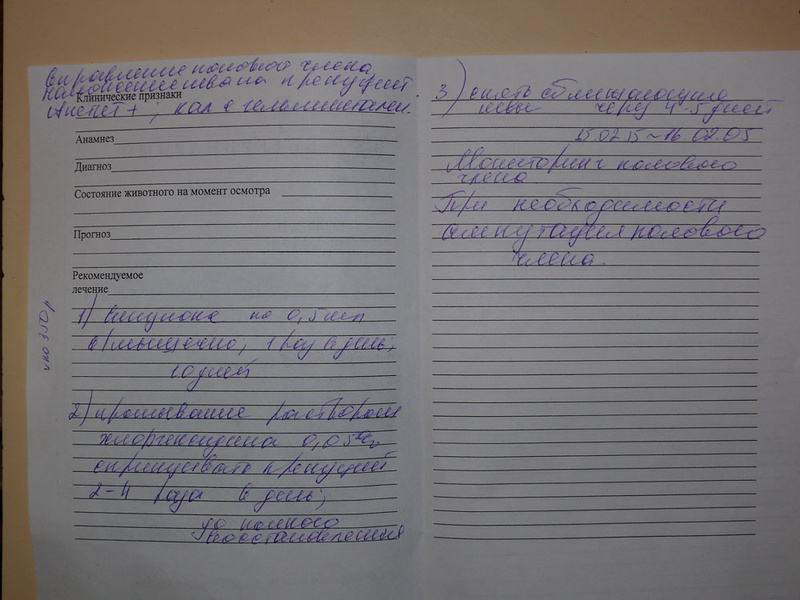 Вправление полового члена
наложение шва на препуций.
Клинические признаки
Аппетит+, кал с гельминтами.
Анамнез
Диагноз
Состояние животного на момент осмотра
Прогноз
Рекомендуемое
лечение
1) по 0,5мл
в/мышечно, 1 раз в день,
10 дней
2) промывание раствором
хлоргексидина 0,05%
спринцевать препуций
2-4 раза в день,
до полного
восстановления
350р
3) снять сближающие
швы через 4-5 дней
15.02.15~16.02.05
Мониторинг полового
члена.
При необходимости
ампутация полового
члена.